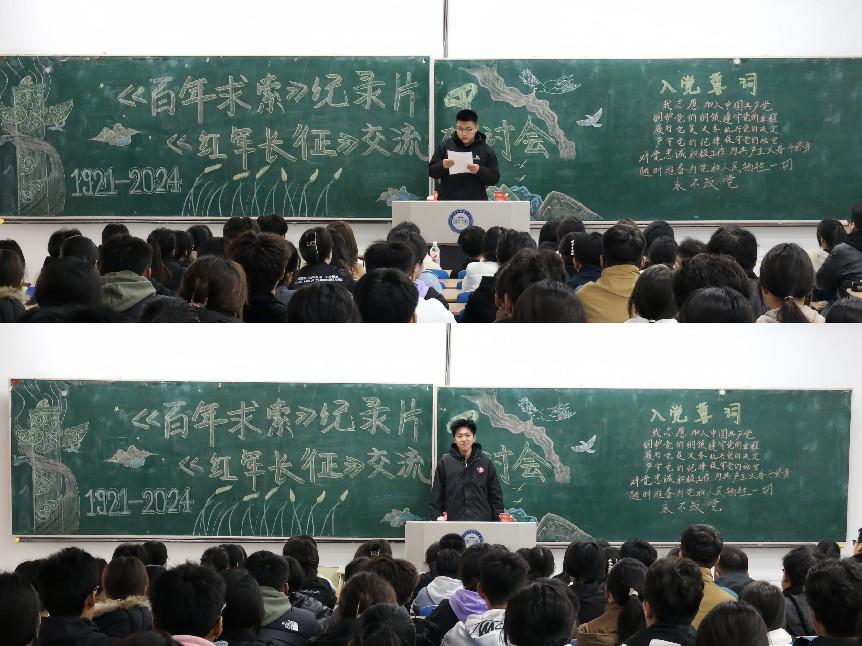 《百年求索》纪录片
《红军长征》交流讨会
1921-2024
入党誓词
我志愿加入中国共产党
拥护党的纲领遵守党的章程
履行党员义务执行党的决定
严守党的纪律保守党的秘密
对党忠诚积极工作为共产主义奋斗终身
随时准备为党和人民牺牲一切
永不叛党
《百年求索》纪录片
《红军长征》交流讨会
1921-2024
入党誓词
我志愿加入中国共产党
拥护党的纲领遵守党的章程
履行党员义务执行党的决定
严守党的纪律保守党的秘密
对党忠诚积极工作为共产主义奋斗终身
随时准备为党和人民牺牲一切
永不叛党